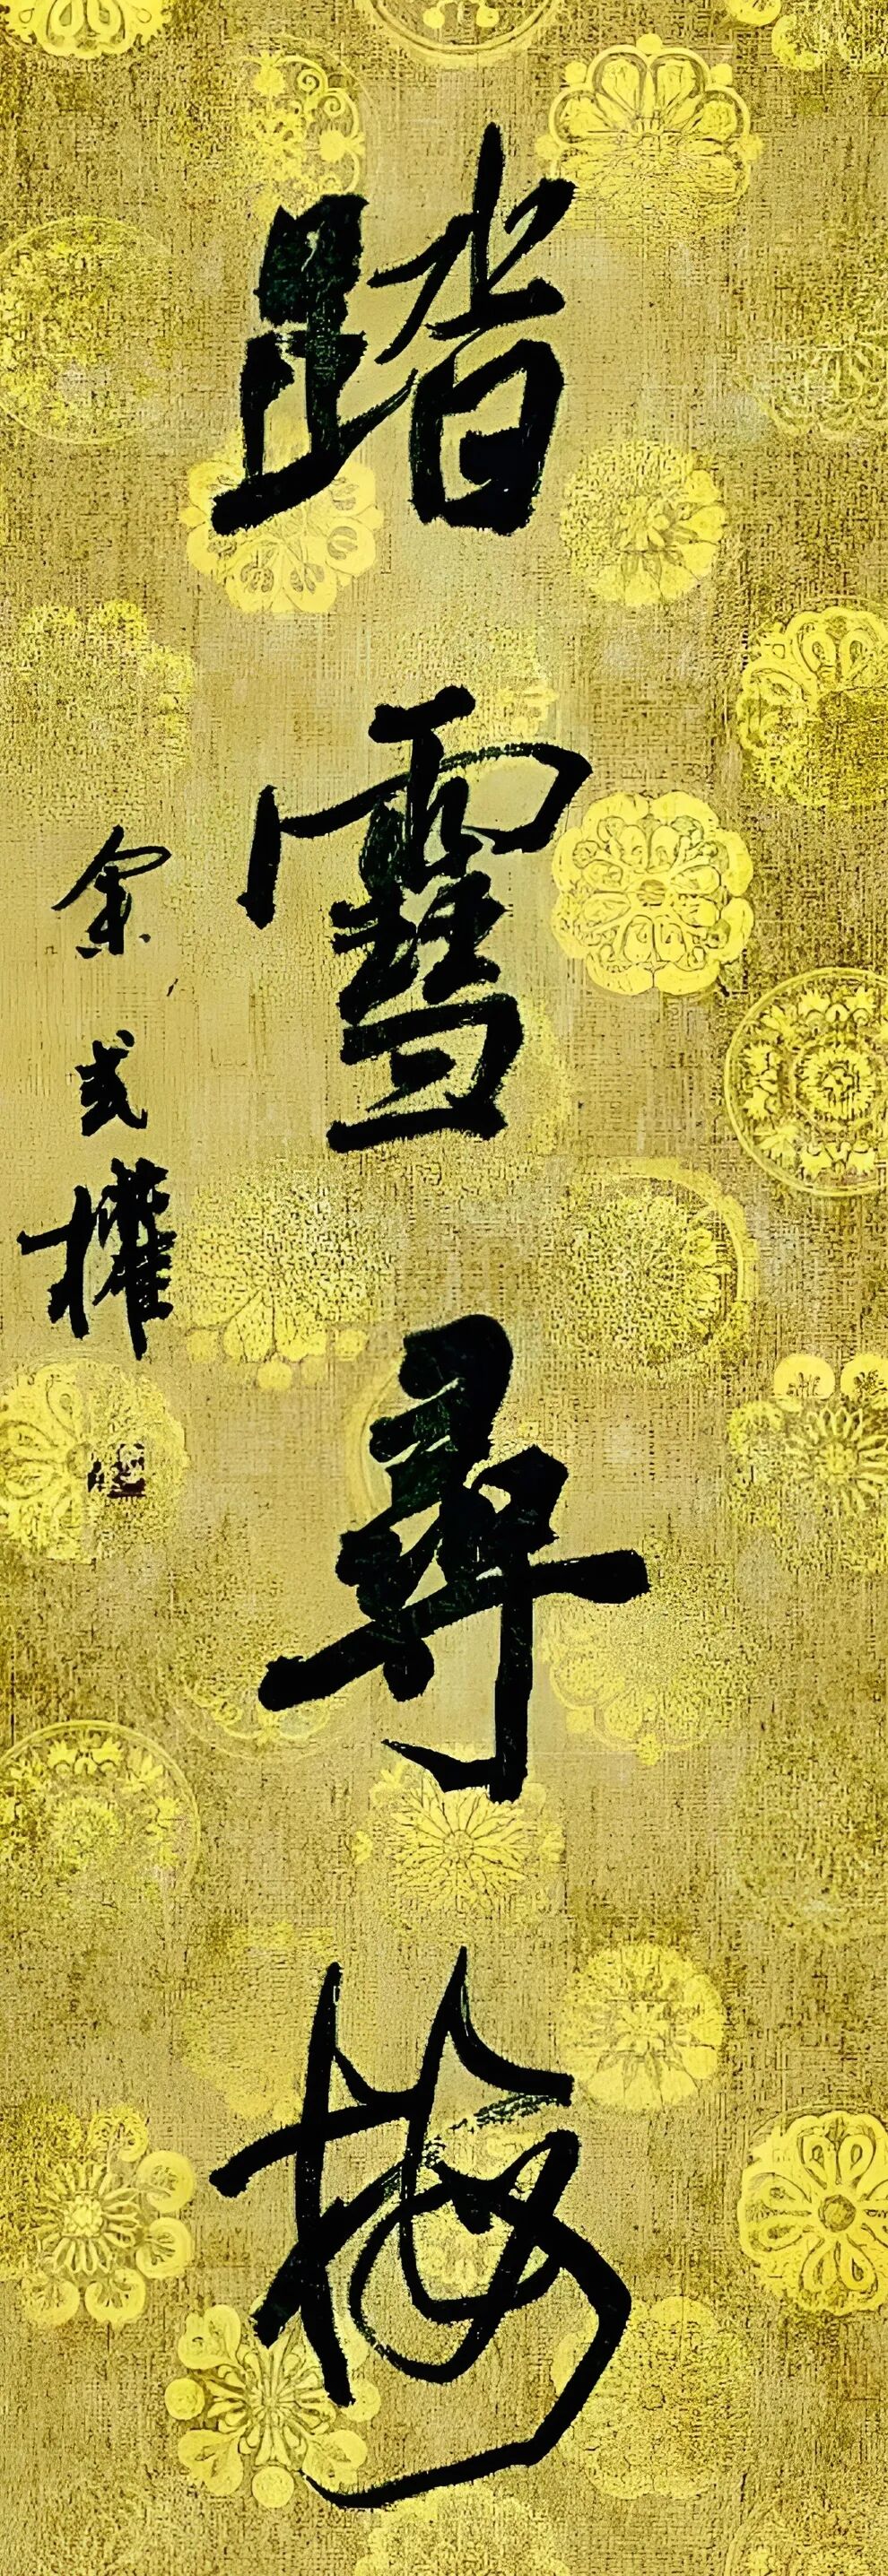 踏雪尋梅
余武權